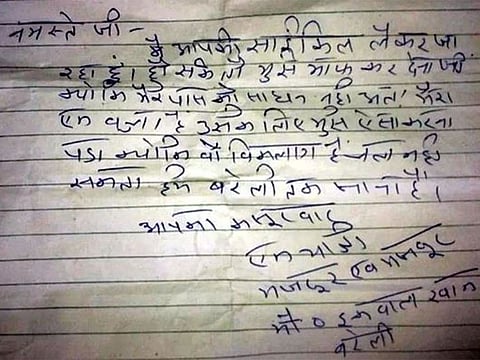 नमस्ते जी -
मै आपकी साईकिल लेकर जा
रहा हूं। हो सके तो मुझे माफ कर देना जी
क्योकि मेरे पास कोई साधन नही अतः मेरा
एक बच्चा है उसके लिए मुझे ऐसा करना
पडा क्योकि वो विकलांग है चल नही
सकता हमे बरेली तक जाना है।
आपका कसूरवार
एक यात्री
मजदूर एवं मजबूर
मौ० इकबाल खान
बरेली